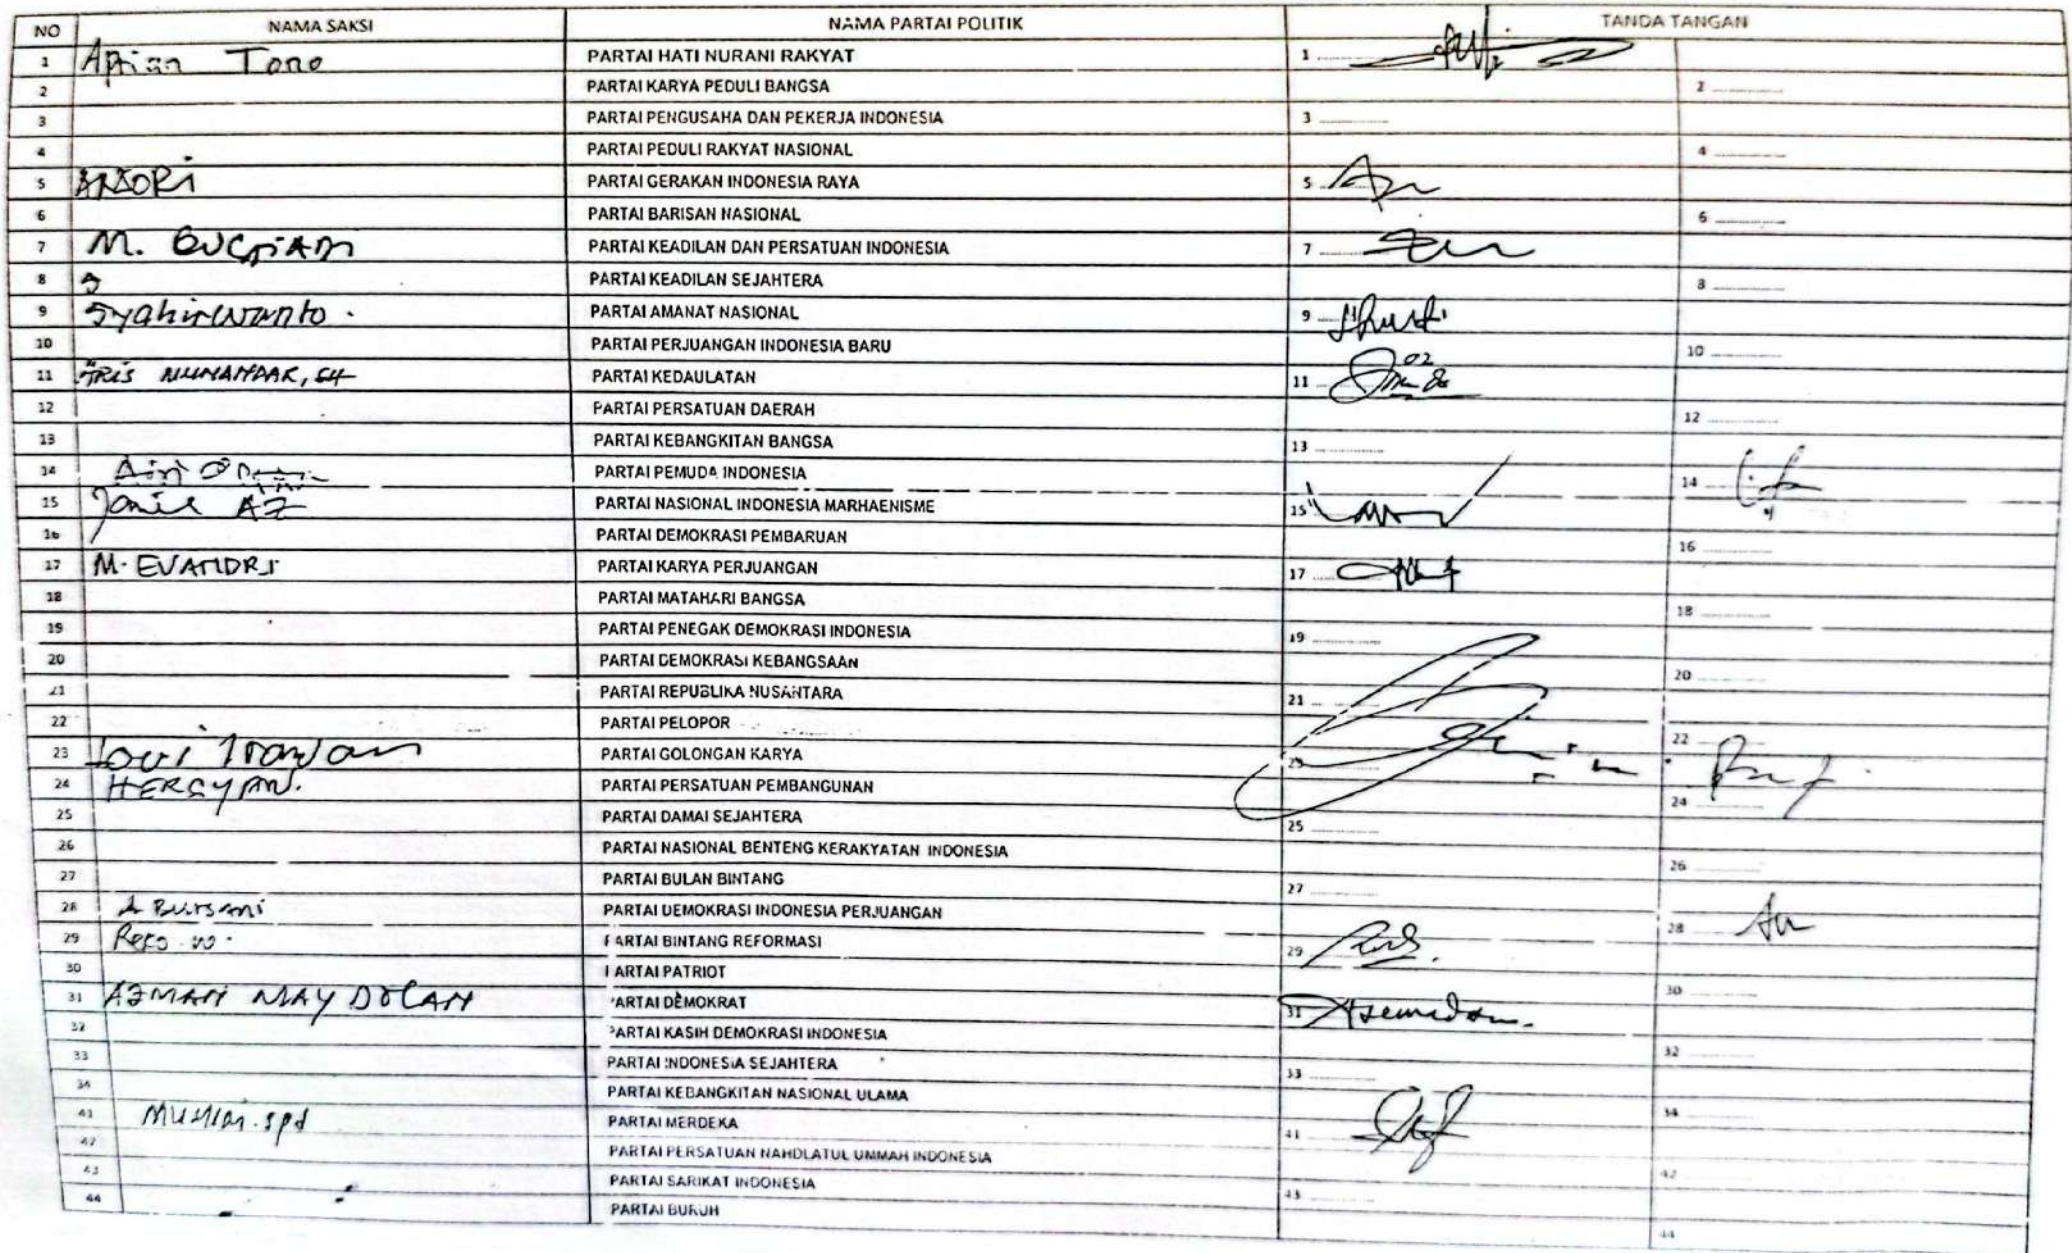 NO NAMA SAKSI NAMA PARTAI POLITIK TANDA TANGAN
1 Aprian Tono PARTAI HATI NURANI RAKYAT 1
2 PARTAI KARYA PEDULI BANGSA 2
3 PARTAI PENGUSAHA DAN PEKERJA INDONESIA 3
4 PARTAI PEDULI RAKYAT NASIONAL 4
5 ANSORI PARTAI GERAKAN INDONESIA RAYA 5
6 PARTAI BARISAN NASIONAL 6
7 M. PARTAI KEADILAN DAN PERSATUAN INDONESIA 7
8 PARTAI KEADILAN SEJAHTERA 8
9 Syahirwanto . PARTAI AMANAT NASIONAL 9
10 PARTAI PERJUANGAN INDONESIA BARU 10
11 PARTAI KEDAULATAN 11
12 PARTAI PERSATUAN DAERAH 12
13 PARTAI KEBANGKITAN BANGSA 13
14 PARTAI PEMUDA INDONESIA 14
15 AZ PARTAI NASIONAL INDONESIA MARHAENISME 15
16 PARTAI DEMOKRASI PEMBARUAN 16
17 M. EVANDRI PARTAI KARYA PERJUANGAN 17
18 PARTAI MATAHARI BANGSA 18
19 PARTAI PENEGAK DEMOKRASI INDONESIA 19
20 PARTAI DEMOKRASI KEBANGSAAN 20
21 PARTAI REPUBLIKA NUSANTARA 21
22 PARTAI PELOPOR 22
23 PARTAI GOLONGAN KARYA 23
24 PARTAI PERSATUAN PEMBANGUNAN 24
25 PARTAI DAMAI SEJAHTERA 25
26 PARTAI NASIONAL BENTENG KERAKYATAN INDONESIA 26
27 PARTAI BULAN BINTANG 27
28 PARTAI DEMOKRASI INDONESIA PERJUANGAN 28
29 PARTAI BINTANG REFORMASI 29
30 PARTAI PATRIOT 30
31 PARTAI DEMOKRAT 31
32 PARTAI KASIH DEMOKRASI INDONESIA 32
33 PARTAI INDONESIA SEJAHTERA 33
34 PARTAI KEBANGKITAN NASIONAL ULAMA 34
41 PARTAI MERDEKA 41
42 PARTAI PERSATUAN NAHDLATUL UMMAH INDONESIA 42
43 PARTAI SARIKAT INDONESIA 43
44 PARTAI BURUH 44